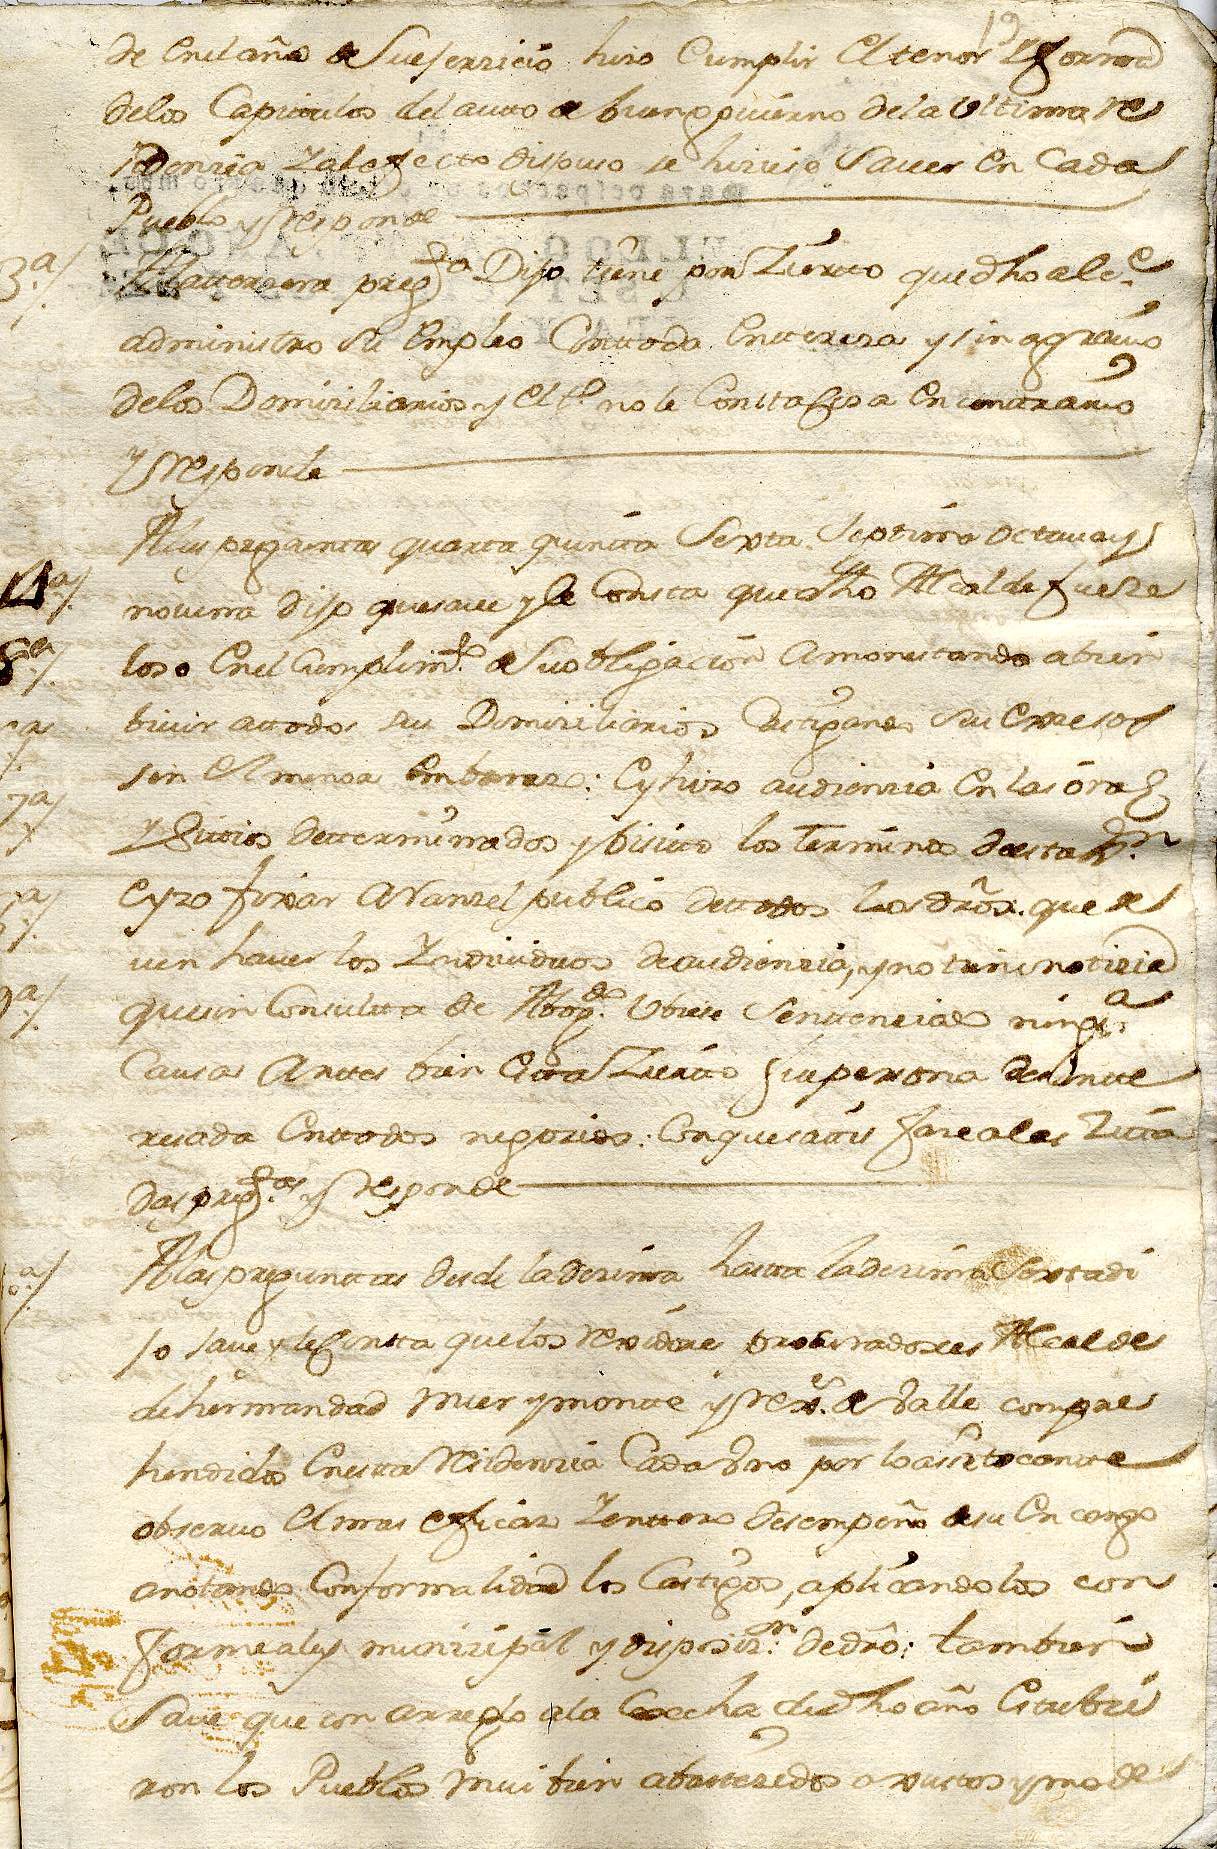 19
de en el año de su ejerricio hizo Cumplir el tenor y forma
de los Capitulos del autto de buen govierno de la Ultima re
sidenzia Y al efecto dispuso se hiziese Saver en Cada
Pueblo y responde
3.ª A la terzera preg.ta Dijo tiene por Zierto que dho alc.e
administro su Empleo Con ttoda Enttereza y sin agravio
de los Domiziliarios y el t.º no le Constta Cosa en contrario
y responde
4.ª A las preguntas quarta quinta Sexta Septima octava y
novena dijo que save y le Consta que dho Alcalde fue ze
loso en el Cumplim.to de su obligacion amonestando a bien
bivir a ttodos sus Domiziliarios Castigando sus excesos
sin el menor embarazo: E hizo audienzia en las oras
y Sitios determinados y visito los Terminos de esta
7.ª
E yzo fixar Aranzel publico de ttodos los dros. que de
ven haver los Yndividuos de audienzia, y no tiene notizia
9.ª que sin Consultta de Abog.do Ubiese Senttenciado ning.a
Causa Anttes bien Era Zierto Su persona desintte
resada En ttodos negozios: Con que satis faze a las Zitta
das preg.tas y responde
A las preguntas desde la dezima hasta la dezima Sexta di
jo save y le Constta que los rexidores procuradores Alcaldes
de hermandad Mier y montte y rex.es de Valle compre
hendidos en estta Residenzia Cada Uno por lo a si tocantte
observo el mas eficaz Y enttero desempeño de su Encargo
anotando Con formalidad los Casttigos, aplicandolos con
forme a ley munizipal y disposiz.on de dro: tambien
Save que con arreglo a la Cosecha de dho año Estubie
ron los Pueblos mui bien abastezidos a justtos y mode